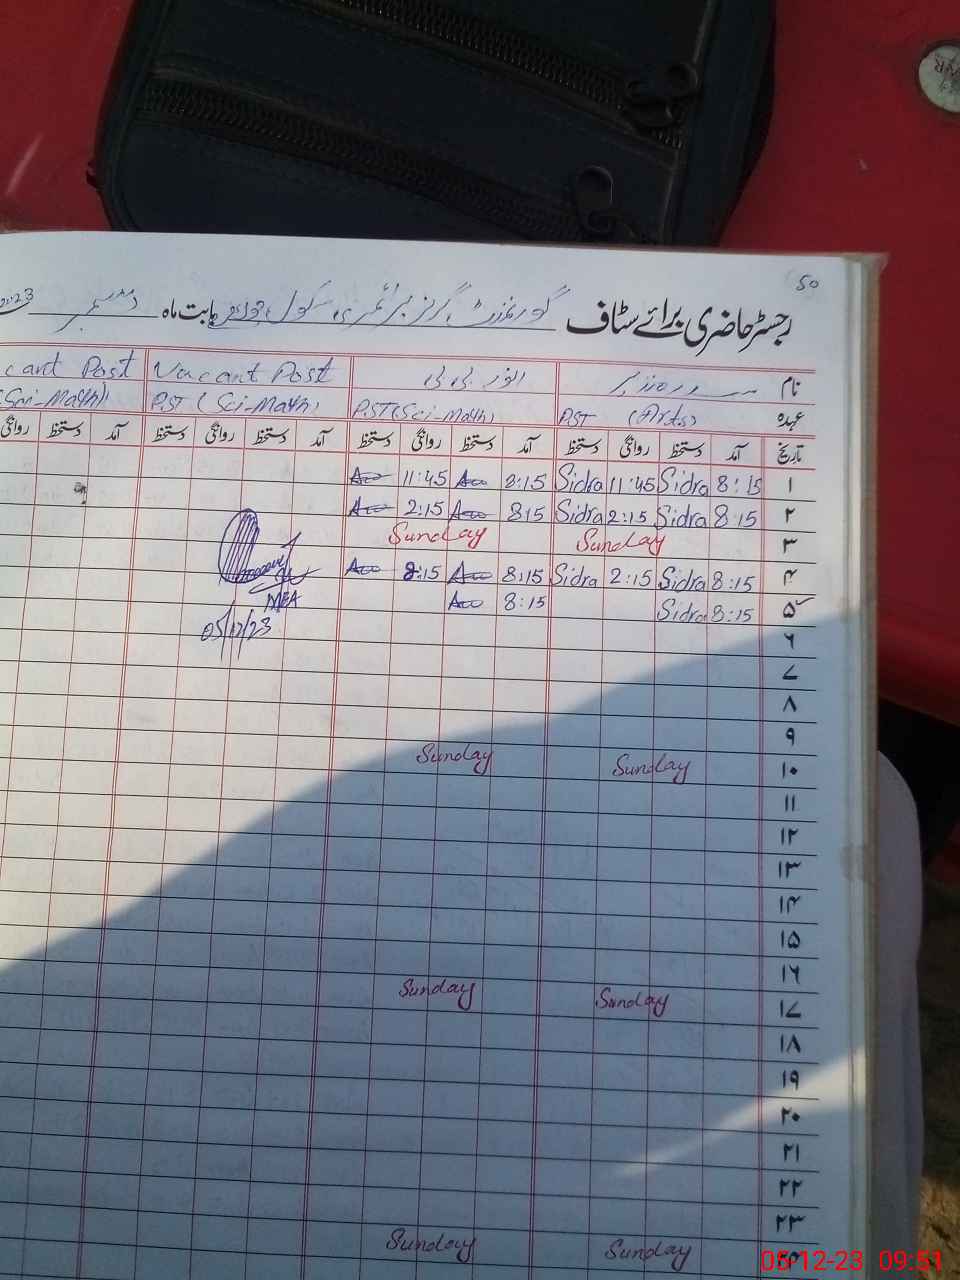 50
رجسٹر حاضری برائے سٹاف گورنمنٹ گرلز پرائمری سکول بابت ماہ دسمبر
نام Vacant Post cant Post
عہدہ PST (Arts) PST (Sci-Math) PST (Sci-Math) (Sci-Math)
تاریخ آمد دستخط روانگی دستخط آمد دستخط روانگی دستخط آمد دستخط روانگی دستخط آمد دستخط روانگی
۱ 8:15 Sidra 11:45 Sidra 8:15 11:45
۲ 8:15 Sidra 2:15 Sidra 8:15 2:15
۳ Sunday Sunday
۴ 8:15 Sidra 2:15 Sidra 8:15 8:15
۵ 8:15 Sidra 8:15
MEA
05/12/23
۶
۷
۸
۹
۱۰ Sunday Sunday
۱۱
۱۲
۱۳
۱۴
۱۵
۱۶
۱۷ Sunday Sunday
۱۸
۱۹
۲۰
۲۱
۲۲
۲۳
Sunday Sunday
05-12-23 09:51